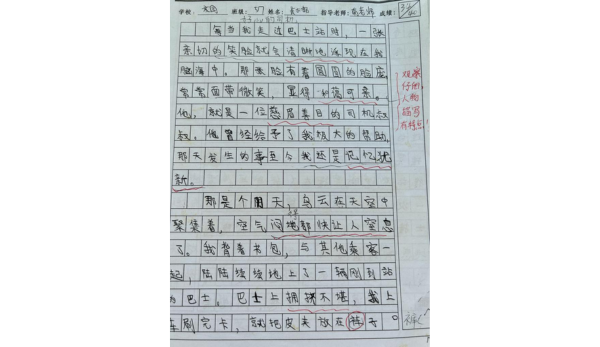 学校： 班级：5/1 姓名： 指导老师： 成绩：
好心的司机
每当我走过巴士站时，一张
亲切的笑脸就会清晰地浮现在我
脑海中。那张脸有着圆圆的脸庞，
常常面带微笑，显得和蔼可亲。
他，就是一位慈眉善目的司机叔
叔。他曾经给予了我极大的帮助，
那天发生的事至今我还是记忆犹
新。
观察
仔细，
人物
描写
有特点！
那是个阴天，乌云在天空中
聚集着，空气闷热都快让人窒息
了。我背着书包，与其他乘客一
起，陆陆续续地上了一辆刚到站
的巴士。巴士上拥挤不堪，我上
车刷完卡，就把皮夹放在裤子。